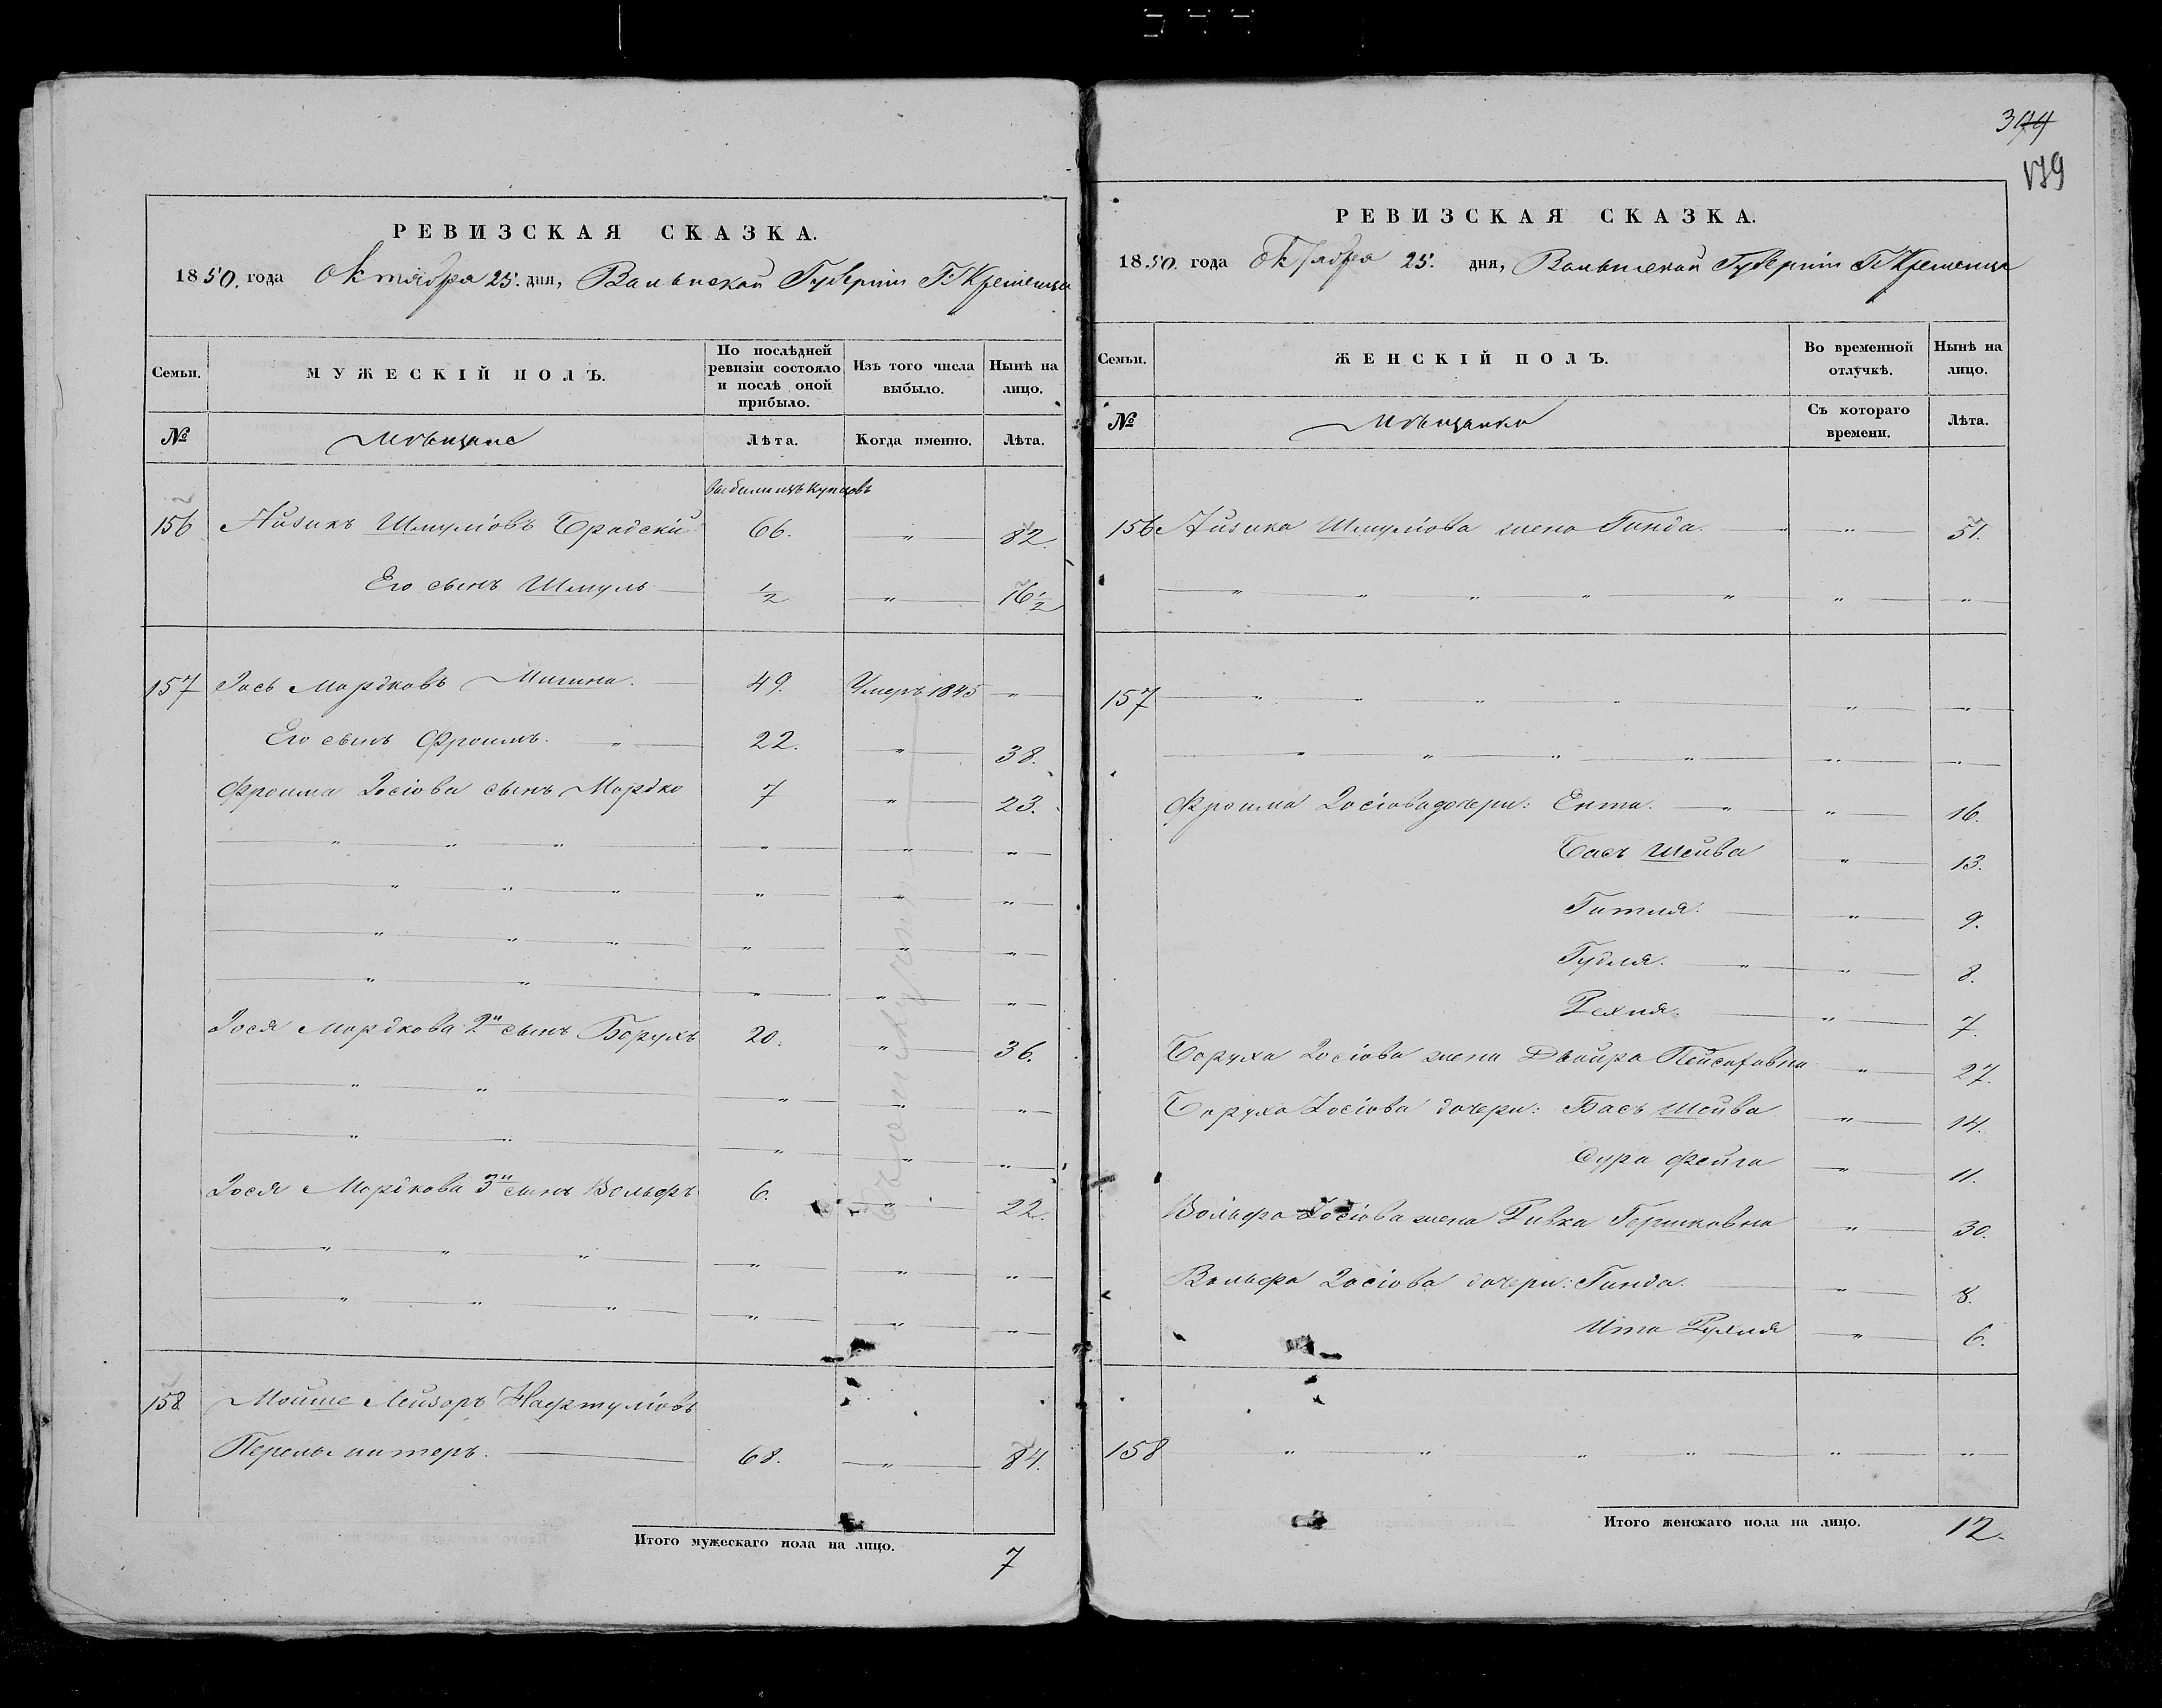 344
179
РЕВИЗСКАЯ СКАЗКА.
1850. года Октября 25. дня, Волынской Губерніи Г. Кременца
Семьи.
МУЖЕСКІЙ ПОЛЪ.
По послѣдней ревизіи состояло и послѣ оной прибыло.
Изъ того числа выбыло.
Нынѣ на лицо.
№
Мѣщане
Лѣта.
Когда именно.
Лѣта.
изъ купцовъ
156 Айзикъ Шмуліовъ Бродскій 66. „ 82.
Его сынъ Шмуль ½ „ 16½
157 Іось Мордковъ 49. Умеръ 1845 „
Его сынъ Фроимъ. „ 22. „ 38.
Фроима Іосіова сынъ Мордко 7 „ 23.
„ „ „ „ „ „
„ „ „ „ „ „
„ „ „ „ „ „
„ „ „ „ „
Іося Мордкова 2й сынъ Борухъ 20. „ 36.
„ „ „ „ „
„ „ „ „ „
Іося Мордкова 3й сынъ Вольфъ 6. „ 22.
„ „ „ „ „ „
„ „ „ „ „ „
158 Мойше Лейзоръ Нафтуліовъ
Перельмитеръ. 68. „ 84.
Итого мужескаго пола на лицо. 7
РЕВИЗСКАЯ СКАЗКА.
1850. года Октября 25. дня, Волынской Губерніи Г. Кременца
Семьи.
ЖЕНСКІЙ ПОЛЪ.
Во временной отлучкѣ.
Нынѣ на лицо.
№
Мѣщанки
Съ котораго времени.
Лѣта.
156 Айзика Шмуліова жена Гинда. „ „ 51.
„ „ „ „ „ „ „
157 „ „ „ „ „ „
„ „ „ „ „ „
Фроима Іосіова дочери: Ента. „ „ 16.
Бась Шейва „ 13.
Гитля. „ 9.
Гудля. „ „ 8.
Рехля. „ 7.
Боруха Іосіова жена Двойра Пейсаховна „ 27.
Боруха Іосіова дочери: Бась Шейва „ 14.
Сура Фейга „ 11.
Вольфа Іосіова жена Ривка Гершковна „ 30.
Вольфа Іосіова дочери: Гинда. „ 8.
Ита Рухля „ 6.
158 „ „ „ „ „ „
Итого женскаго пола на лицо. 12.